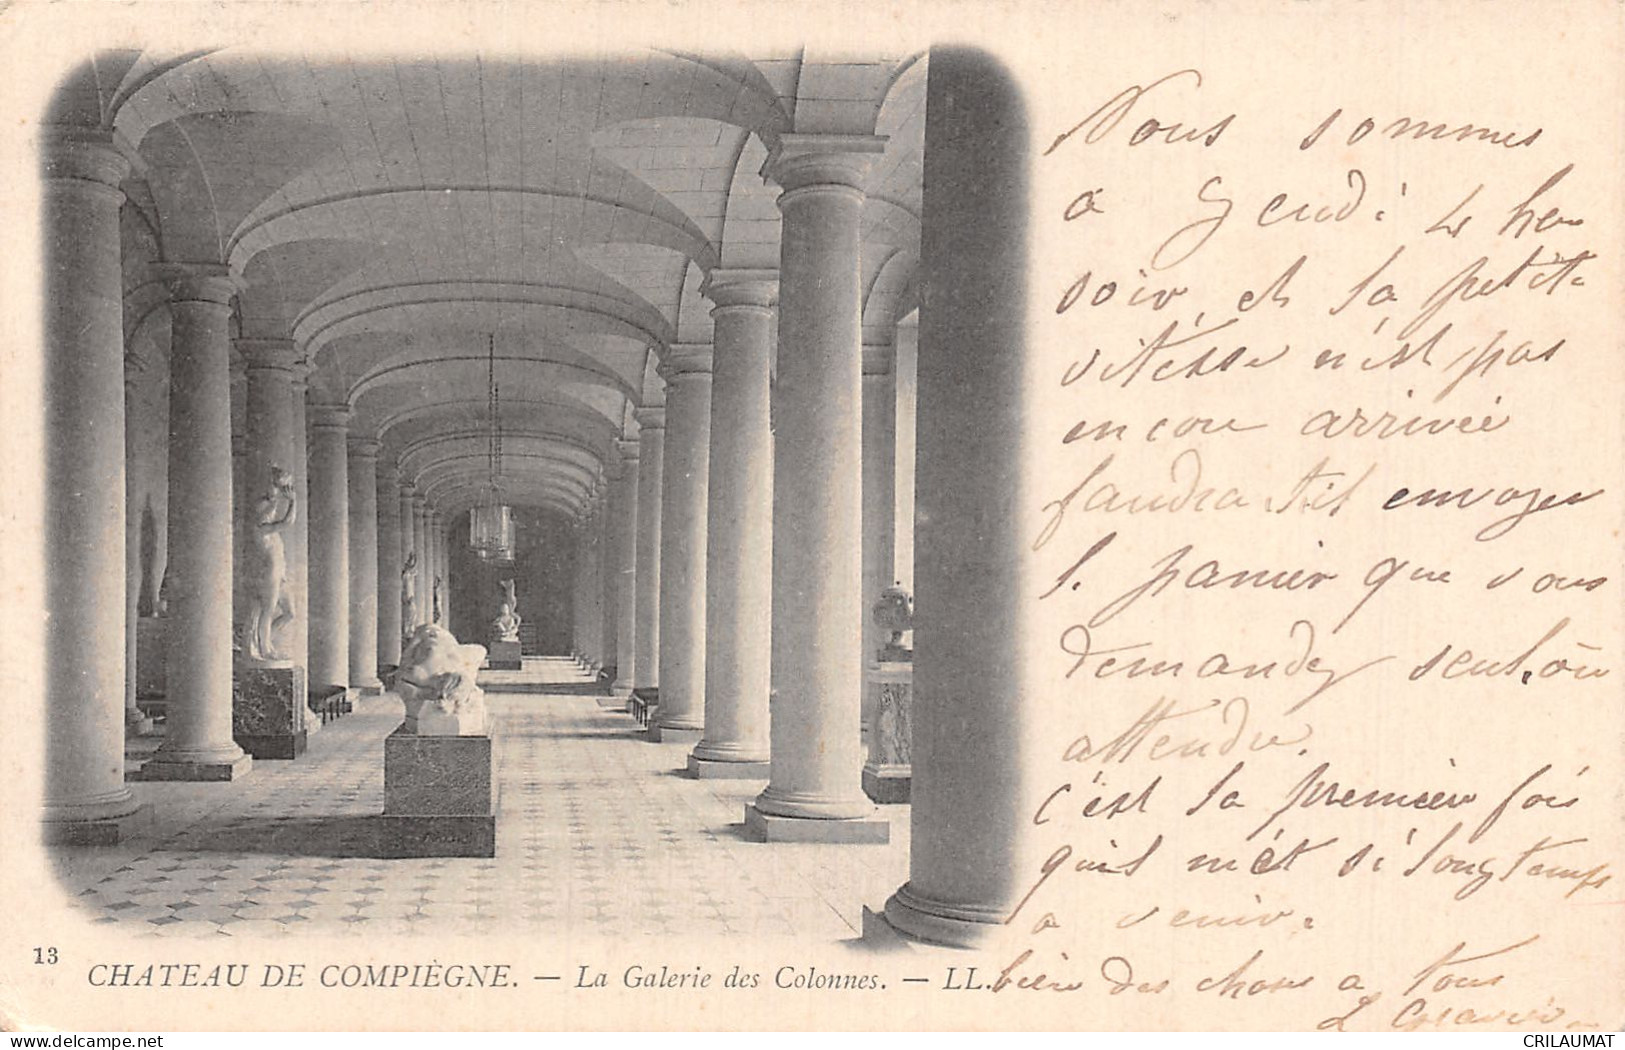 Nous sommes
a Jeudi 4 heu
soir, et la petite
vitesse n'est pas
encore arrivée
faudra til envoyer
l. panier que vous
demandez seul, ou
attendre.
C'est la premièr fois
quil mét si longtemps
a venir.
bien des chose a tous
13
CHATEAU DE COMPIÈGNE. — La Galerie des Colonnes. — LL.
CRILAUMAT